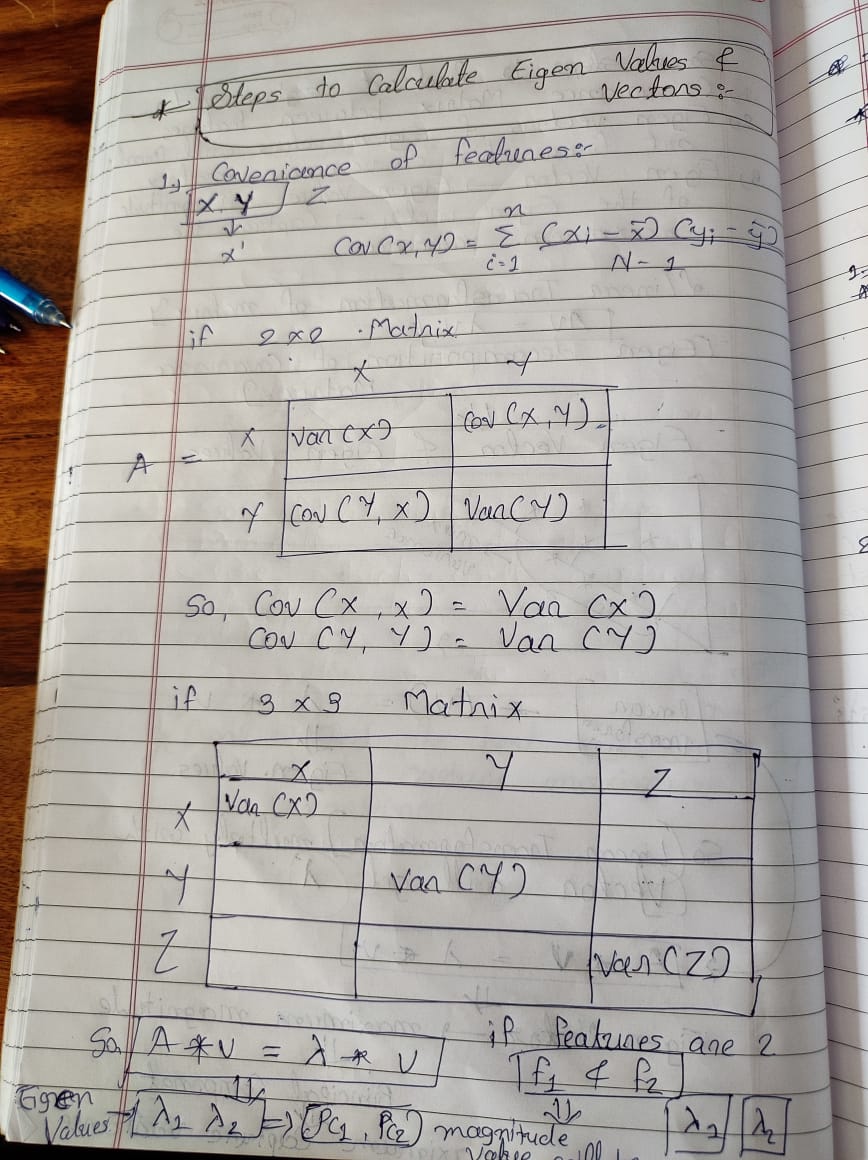 * Steps to Calculate Eigen Values &
Vectors :-
1) Coveriance of features:-
X, Y Z
↓
x'
Cov (x, y) = n Σ i=1 (xi - x̄) (yi - ȳ) / N - 1
if 2 x 2 . Matrix
X Y
A = X Var (X) Cov (X, Y)
Y Cov (Y, X) Var (Y)
So, Cov (X, X) = Var (X)
Cov (Y, Y) = Var (Y)
if 3 x 3 Matrix
X Y Z
X Var (X)
Y Var (Y)
Z Var (Z)
So, A * v = λ * v
if features are 2
f1 & f2
Eigen
Values → λ1 λ2 => PC1, PC2 magnitude
λ1 λ2